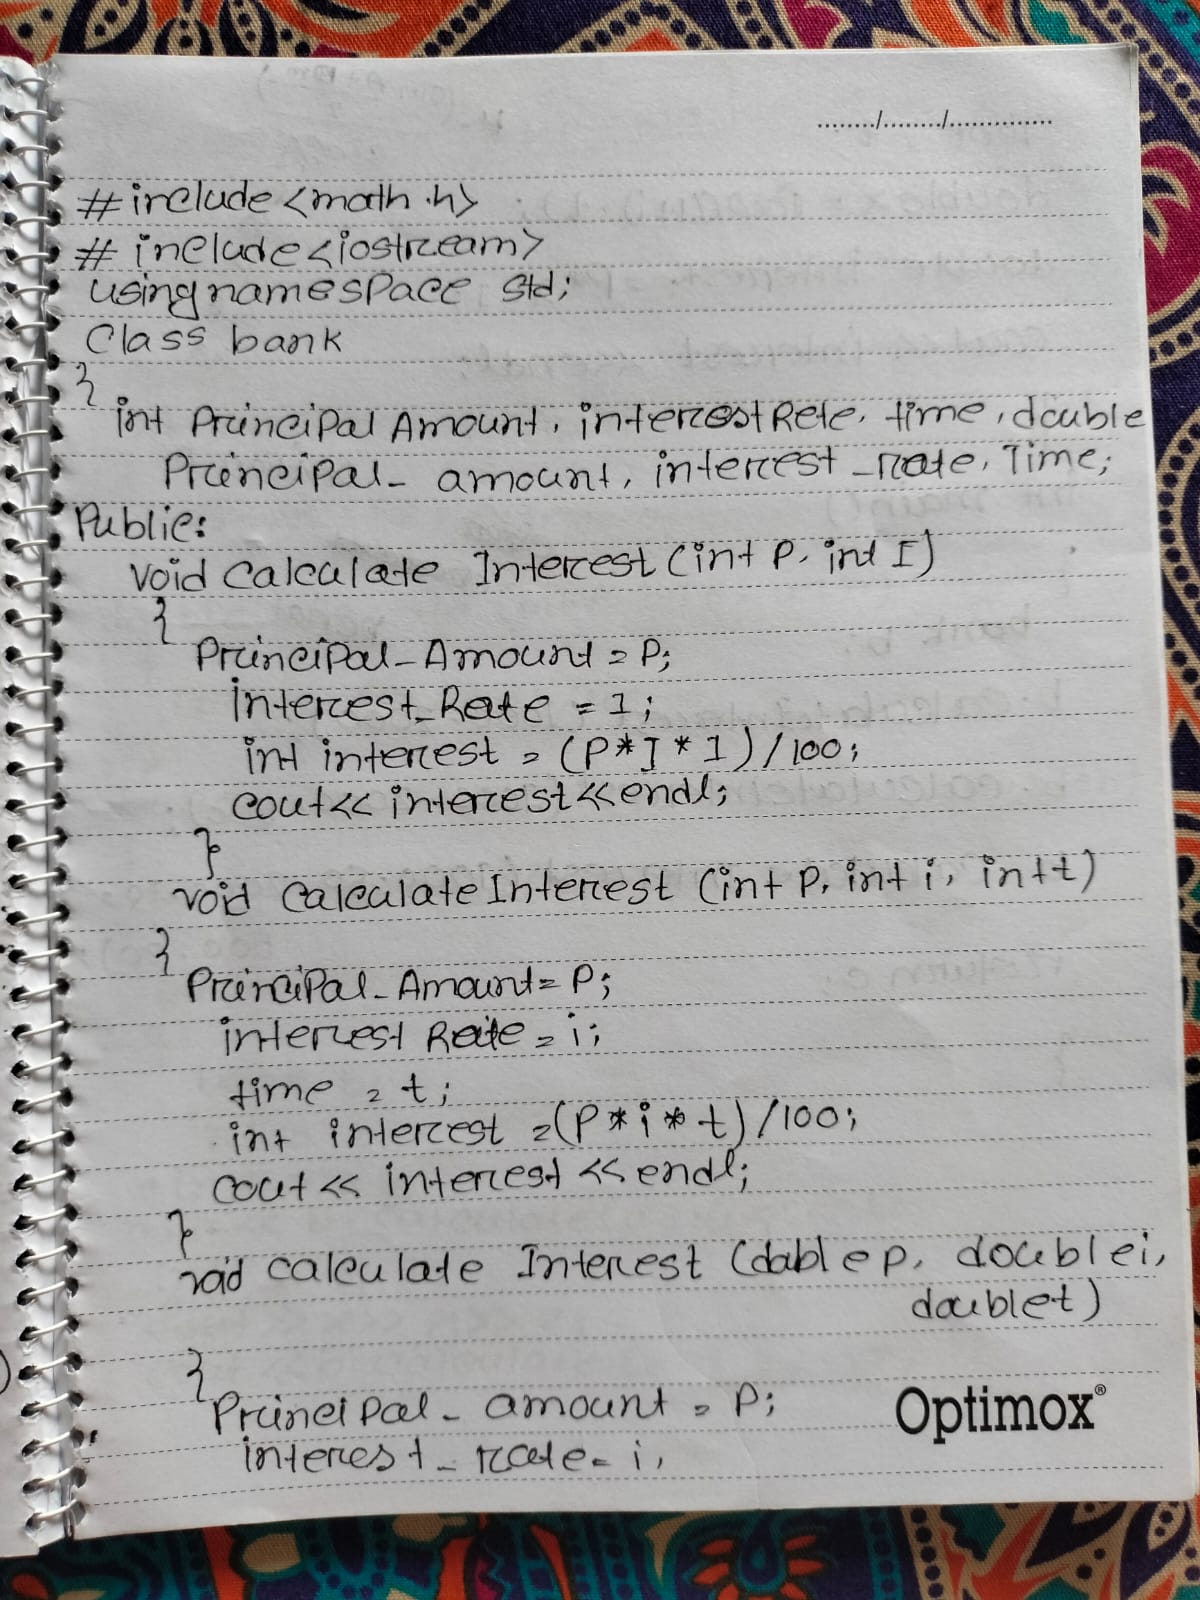 ......../......../..............
#include<math.h>
# include<iostream>
using namespace std;
Class bank
{
int Principal Amount, interestRete, time, double
Principal_ amount, interest_rate, Time;
Public:
void Calculate Interest (int P, int I)
{
Principal_Amount = P;
interest_Rate = 1;
int interest = (P*I*1)/100;
cout<< interest<<endl;
}
void CalculateInterest (int P, int i, int t)
{
Principal_Amount= P;
interest Rate = i;
time = t;
int interest =(P*i*t)/100;
cout << interest <<endl;
}
void calculate Interest (dable p, double i,
double t)
{
Principal_ amount = P;
interest_ rate = i,
Optimox®